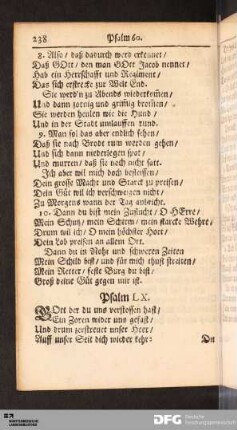 238 Psalm 60.
8. Also/ daß dadurch werd erkennet/
Daß GOtt/ den man GOtt Jacob nennet/
Hab ein Herrschafft und Regiment/
Das sich erstreckt zur Welt End.
Sie werd'n zu Abends wiederkom̃en/
Und dann zornig und grimmig brom̃en/
Sie werden heulen wie die Hund/
Und in der Stadt umlauffen rund.
9. Man sol das aber endlich sehen/
Daß sie nach Brodt rum werden gehen/
Und sich dann niederlegen spat/
Und murren/ daß sie noch nicht satt.
Ich aber wil mich doch befleissen/
Dein grosse Macht und Starck zu preisen/
Dein Güt wil ich verschweigen nicht/
Zu Morgens wann der Tag anbricht.
10. Dann du bist mein Zuflucht/ O HErre/
Mein Schutz/ mein Schirm/ mein starcke Wehre/
Drum wil ich/ O mein höchster Hort/
Dein Lob preisen an allem Ort.
Dann du in Noht und schweren Zeiten
Mein Schild bist/ und für mich thust streiten/
Mein Retter/ feste Burg du bist/
Groß deine Güt gegen mir ist.
Psalm LX.
GOtt der du uns verstossen hast/
Ein Zoren wider uns gefast/
Und drum zerstreuet unser Heer/
Auff unser Seit dich wieder kehr:
Du
DFG Deutsche Forschungsgemeinschaft